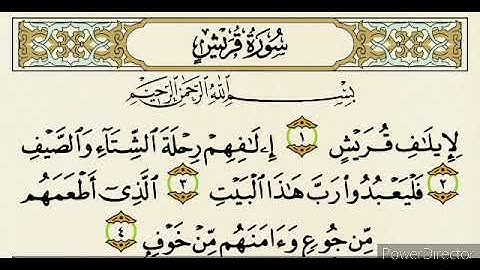 سُورَةُ قُرَيْشٍ
بِسْمِ اللَّهِ الرَّحْمَٰنِ الرَّحِيمِ
لِإِيلَٰفِ قُرَيْشٍ ١ إِۦلَٰفِهِمْ رِحْلَةَ الشِّتَآءِ وَالصَّيْفِ
٢ فَلْيَعْبُدُوا۟ رَبَّ هَٰذَا الْبَيْتِ ٣ الَّذِىٓ أَطْعَمَهُم
مِّن جُوعٍ وَءَامَنَهُم مِّنْ خَوْفٍۭ ٤
PowerDirector